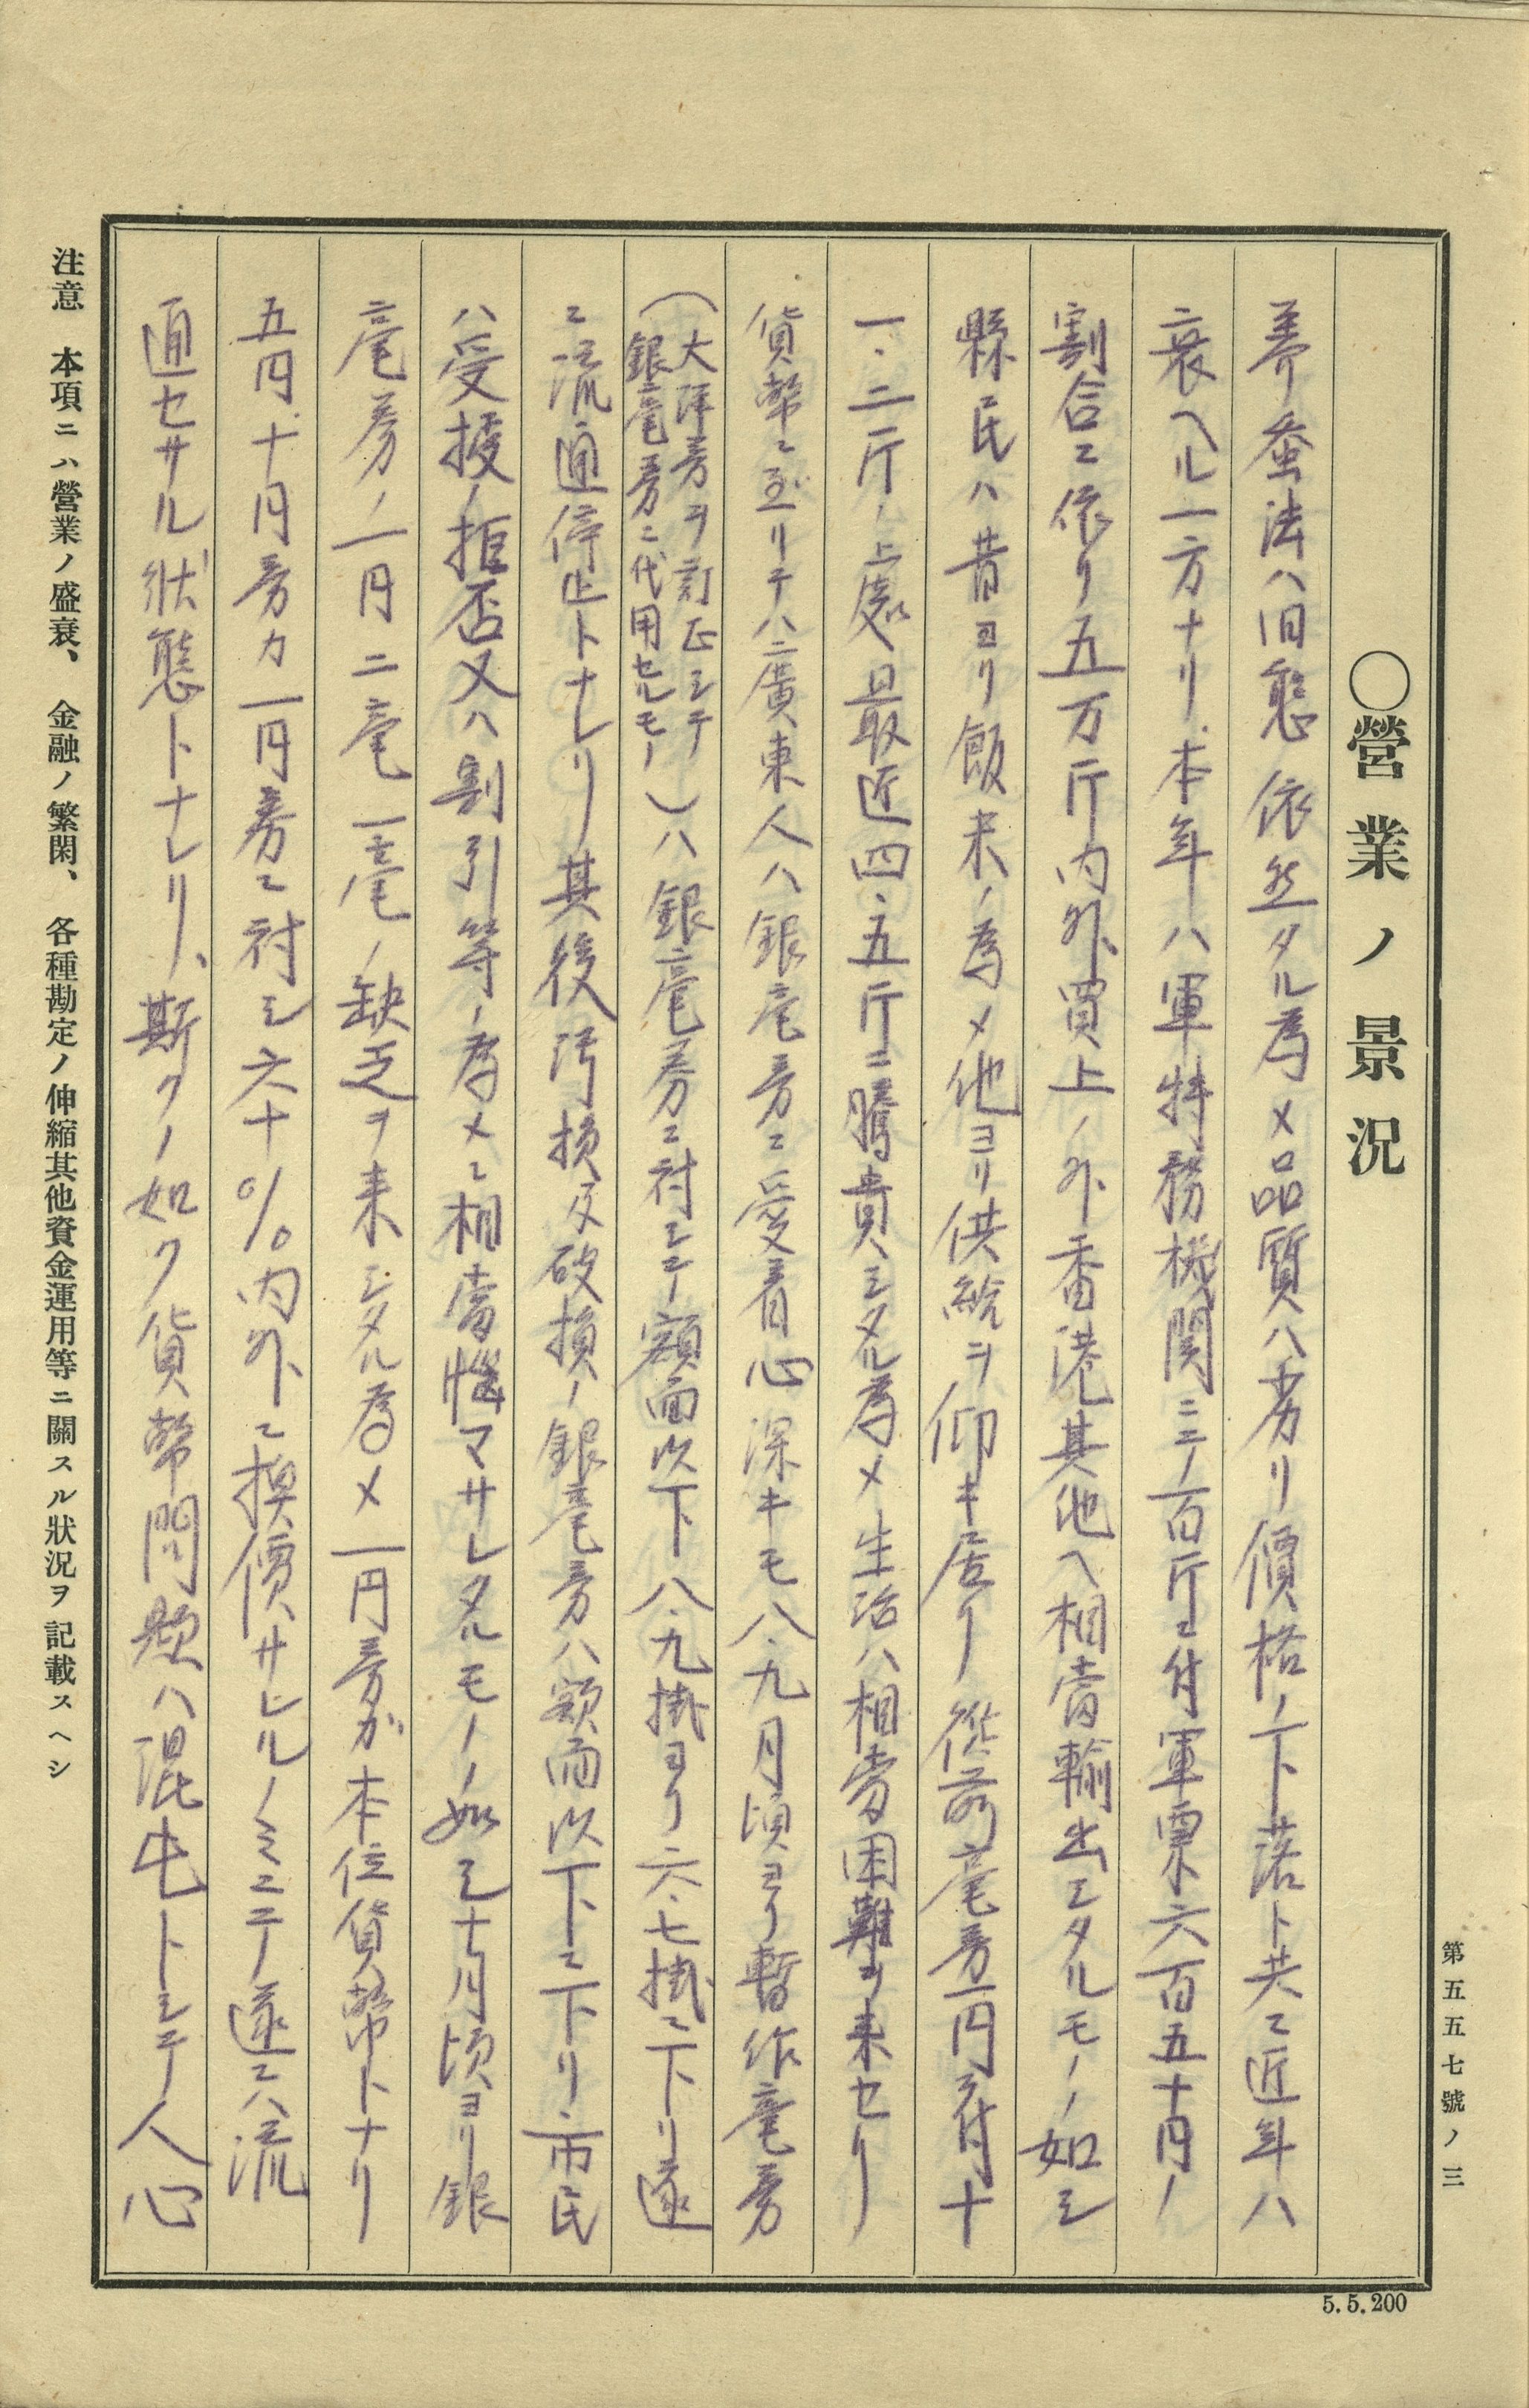 第五五七號ノ三
〇營業ノ景況
養蚕法ハ旧態依然タル為メ品質ハ劣リ價格ノ下落ト共ニ近年ハ
衰ヘル一方ナリ、本年ハ軍特務機関ニテ一百斤ニ付軍票六百五十円ノ
割合ニ依リ五万斤内外買上ノ外香港其他ヘ相當輸出シタルモノノ如シ
縣民ハ昔ヨリ飯米ノ為メ他ヨリ供給ヲ仰キ居リ従前毫券一円ニ付十
一、二斤ノ上處最近四、五斤ニ騰貴シタル為メ生活ハ相當困難ヲ来セリ
貨幣ニ至リテハ廣東人ハ銀毫券ニ愛着心深キモ八、九月頃ヨリ暫作毫券
（大洋券ヲ訂正シテ
銀毫券ニ代用セルモノ）ハ銀毫券ニ対シテ額面以下八、九掛ヨリ六、七掛ニ下リ遂
ニ流通停止トナレリ其後汚損及破損ノ銀毫券ハ額面以下ニ下リ、市民
ハ受授ノ拒否又ハ割引等ノ為メニ相當悩マサレタルモノノ如シ十月頃ヨリ銀
毫券ノ一円二毫一毫ノ缺乏ヲ来シタル為メ一円券ガ本位貨幣トナリ
五円、十円券カ一円券ニ対シ六十％内外ニ換價サレルノミニテ遂ニハ流
通セサル状態トナレリ、斯クノ如ク貨幣問題ハ混屯トシテ人心
注意　本項ニハ營業ノ盛衰、金融ノ繁閑、各種勘定ノ伸縮其他資金運用等ニ關スル狀況ヲ記載スヘシ
5.5.200